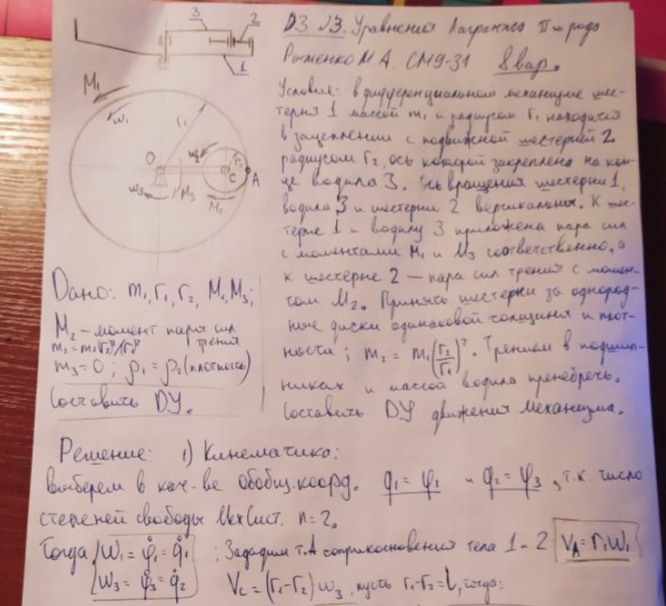 ДЗ №3. Уравнения Лагранжа II рода
Раженко М А. СМ9-31 8 вар.
Условие: в дифференциальном механизме шес-
терня 1 массой m₁ и радиусом r₁ находится
в зацеплении с подвижной шестернёй 2
радиусом r₂, ось которой закреплена на кон-
це водила 3. Ось вращения шестерни 1,
водила 3 и шестерни 2 вертикальны. К ше-
стерне 1 и водилу 3 приложена пара сил
с моментами M₁ и M₃ соответственно, а
к шестерне 2 — пара сил трения с момен-
том M₂. Принять шестерни за однород-
ные диски одинаковой толщины и плот-
ности; m₂ = m₁(r₂/r₁)². Трением в подшип-
никах и массой водила пренебречь.
Составить ДУ движения механизма.
3 2
1
M₁
ω₁
r₁
O
ω₂
r₂
C
A
ω₃
M₃
Дано: m₁, r₁, r₂, M₁, M₃;
M₂ – момент пары сил
трения
m₂ = m₁r₂²/r₁²
m₃=0; ρ₁ = ρ₂ (плотность)
Составить ДУ.
Решение: 1) Кинематика:
выберем в кач-ве обобщ. коорд. q₁ = φ₁ и q₂ = φ₃, т.к. число
степеней свободы мех.сист. n=2.
Тогда ω₁ = φ̇₁ = q̇₁ ; Зададим т.А соприкосновения тела 1-2 V_A = r₁ω₁
ω₃ = φ̇₃ = q̇₂ V_C = (r₁-r₂)ω₃, пусть r₁-r₂=l, тогда: